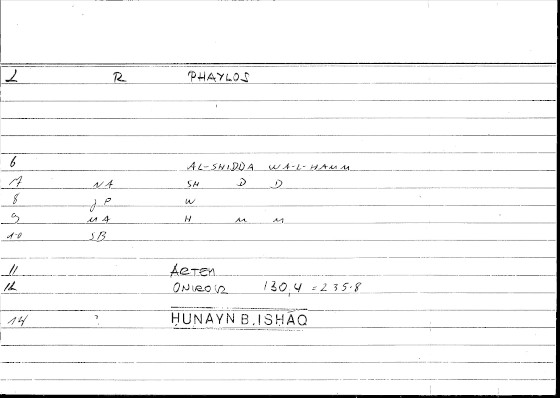 2 R PHAYLOS
6 AL-SHIDDA WA-L-HAMM
7 NA SH D D
8 jP W
9 MA H M M
10 SB
11 ARTEM
12 ONIROCR 130,4 = 235.8
14 ? ḤUNAYN B. ISHĀQ